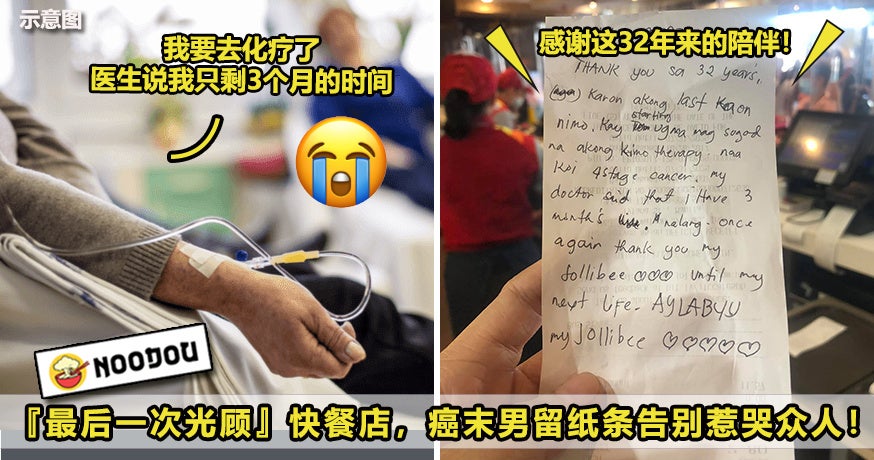 示意图
我要去化疗了
医生说我只剩3个月的时间
感谢这32年来的陪伴!
THANK you sa 32 years,
Karon akong last
nimo. Kay starting ugma mag sogod
na akong kimo therapy. naa
koi 4stage cancer. my
doctor said that i Have 3
month's nalang. once
again thank you my
Jollibee ♡♡♡ until my
next life. AYLABYU
my Jollibee ♡♡♡♡♡
NOODOU
『最后一次光顾』快餐店，癌末男留纸条告别惹哭众人!